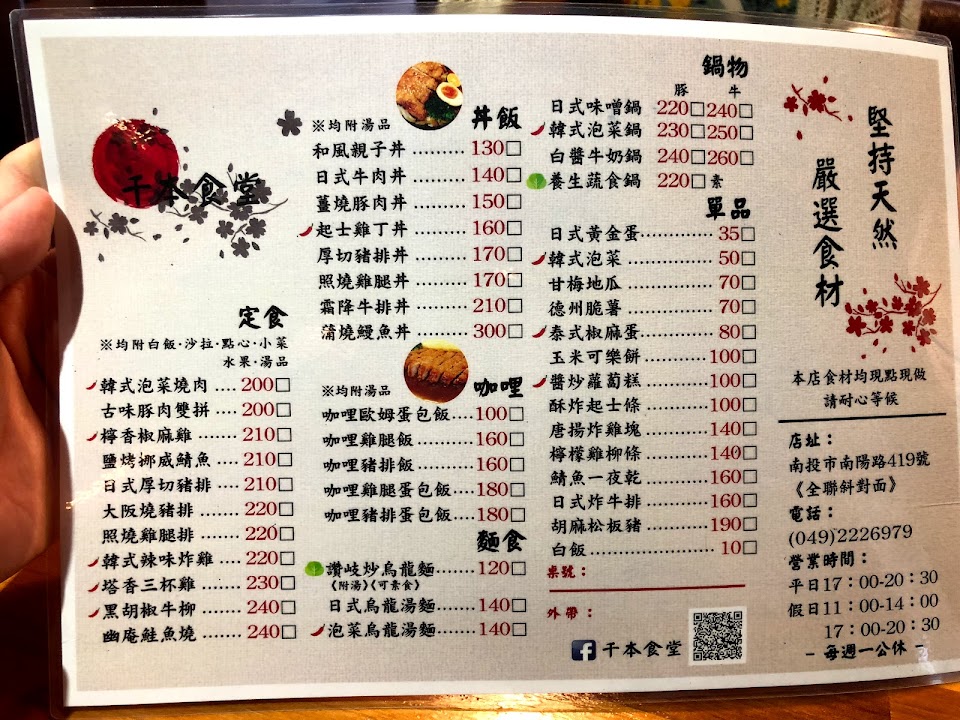 千本食堂
定食
※均附白飯·沙拉·點心·小菜
水果·湯品
韓式泡菜燒肉 .... 200□
古味豚肉雙拼 .... 200□
檸香椒麻雞 ....... 210□
鹽烤挪威鯖魚 .... 210□
日式厚切豬排 .... 210□
大阪燒豬排 ....... 220□
照燒雞腿排 ....... 220□
韓式辣味炸雞 .... 220□
塔香三杯雞 ....... 230□
黑胡椒牛柳 ....... 240□
幽庵鮭魚燒 ....... 240□
※均附湯品 丼飯
和風親子丼 ......... 130□
日式牛肉丼 ......... 140□
薑燒豚肉丼 ......... 150□
起士雞丁丼 ......... 160□
厚切豬排丼 ......... 170□
照燒雞腿丼 ......... 170□
霜降牛排丼 ......... 210□
蒲燒鰻魚丼 ......... 300□
※均附湯品 咖哩
咖哩歐姆蛋包飯.... 100□
咖哩雞腿飯 ......... 160□
咖哩豬排飯 ......... 160□
咖哩雞腿蛋包飯.... 180□
咖哩豬排蛋包飯.... 180□
麵食
讚岐炒烏龍麵...... 120□
《附湯》《可素食》
日式烏龍湯麵...... 140□
泡菜烏龍湯麵...... 140□
鍋物
豚 牛
日式味噌鍋 220□240□
韓式泡菜鍋 230□250□
白醬牛奶鍋 240□260□
養生蔬食鍋 220□素
單品
日式黃金蛋............. 35□
韓式泡菜 ............... 50□
甘梅地瓜 ............... 70□
德州脆薯 ............... 70□
泰式椒麻蛋 ............ 80□
玉米可樂餅 ............ 100□
醬炒蘿蔔糕 ............ 100□
酥炸起士條 ............ 100□
唐揚炸雞塊 ............ 140□
檸檬雞柳條 ............ 140□
鯖魚一夜乾 ............ 160□
日式炸牛排 ............ 160□
胡麻松板豬 ............ 190□
白飯 ..................... 10□
桌號：
外帶：
千本食堂
堅持天然
嚴選食材
本店食材均現點現做
請耐心等候
店址：
南投市南陽路419號
《全聯斜對面》
電話：
(049)2226979
營業時間：
平日17：00-20：30
假日11：00-14：00
17：00-20：30
- 每週一公休 -